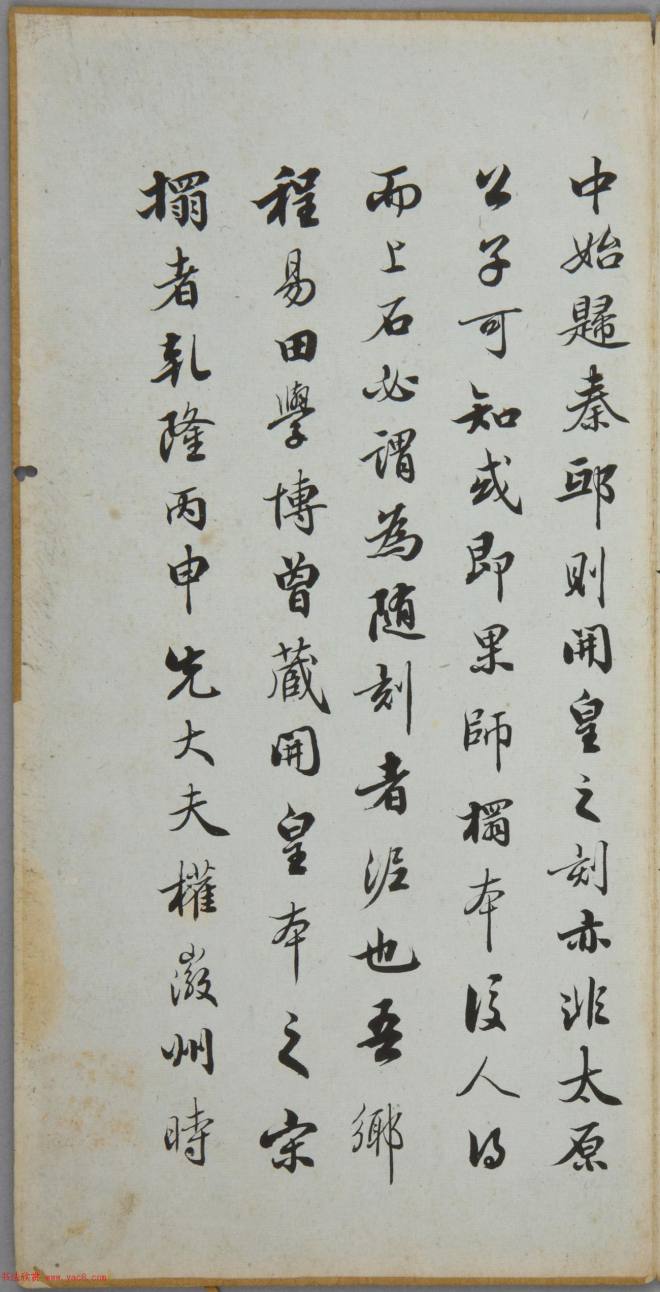 中始歸秦邸則開皇之刻亦非太原
公子可知或即果師搨本後人得
而上石必謂為隨刻者泥也吾鄉
程易田學博曾藏開皇本之宋
搨者乹隆丙申先大夫權㵟州時
书法欣赏 www.yac8.com